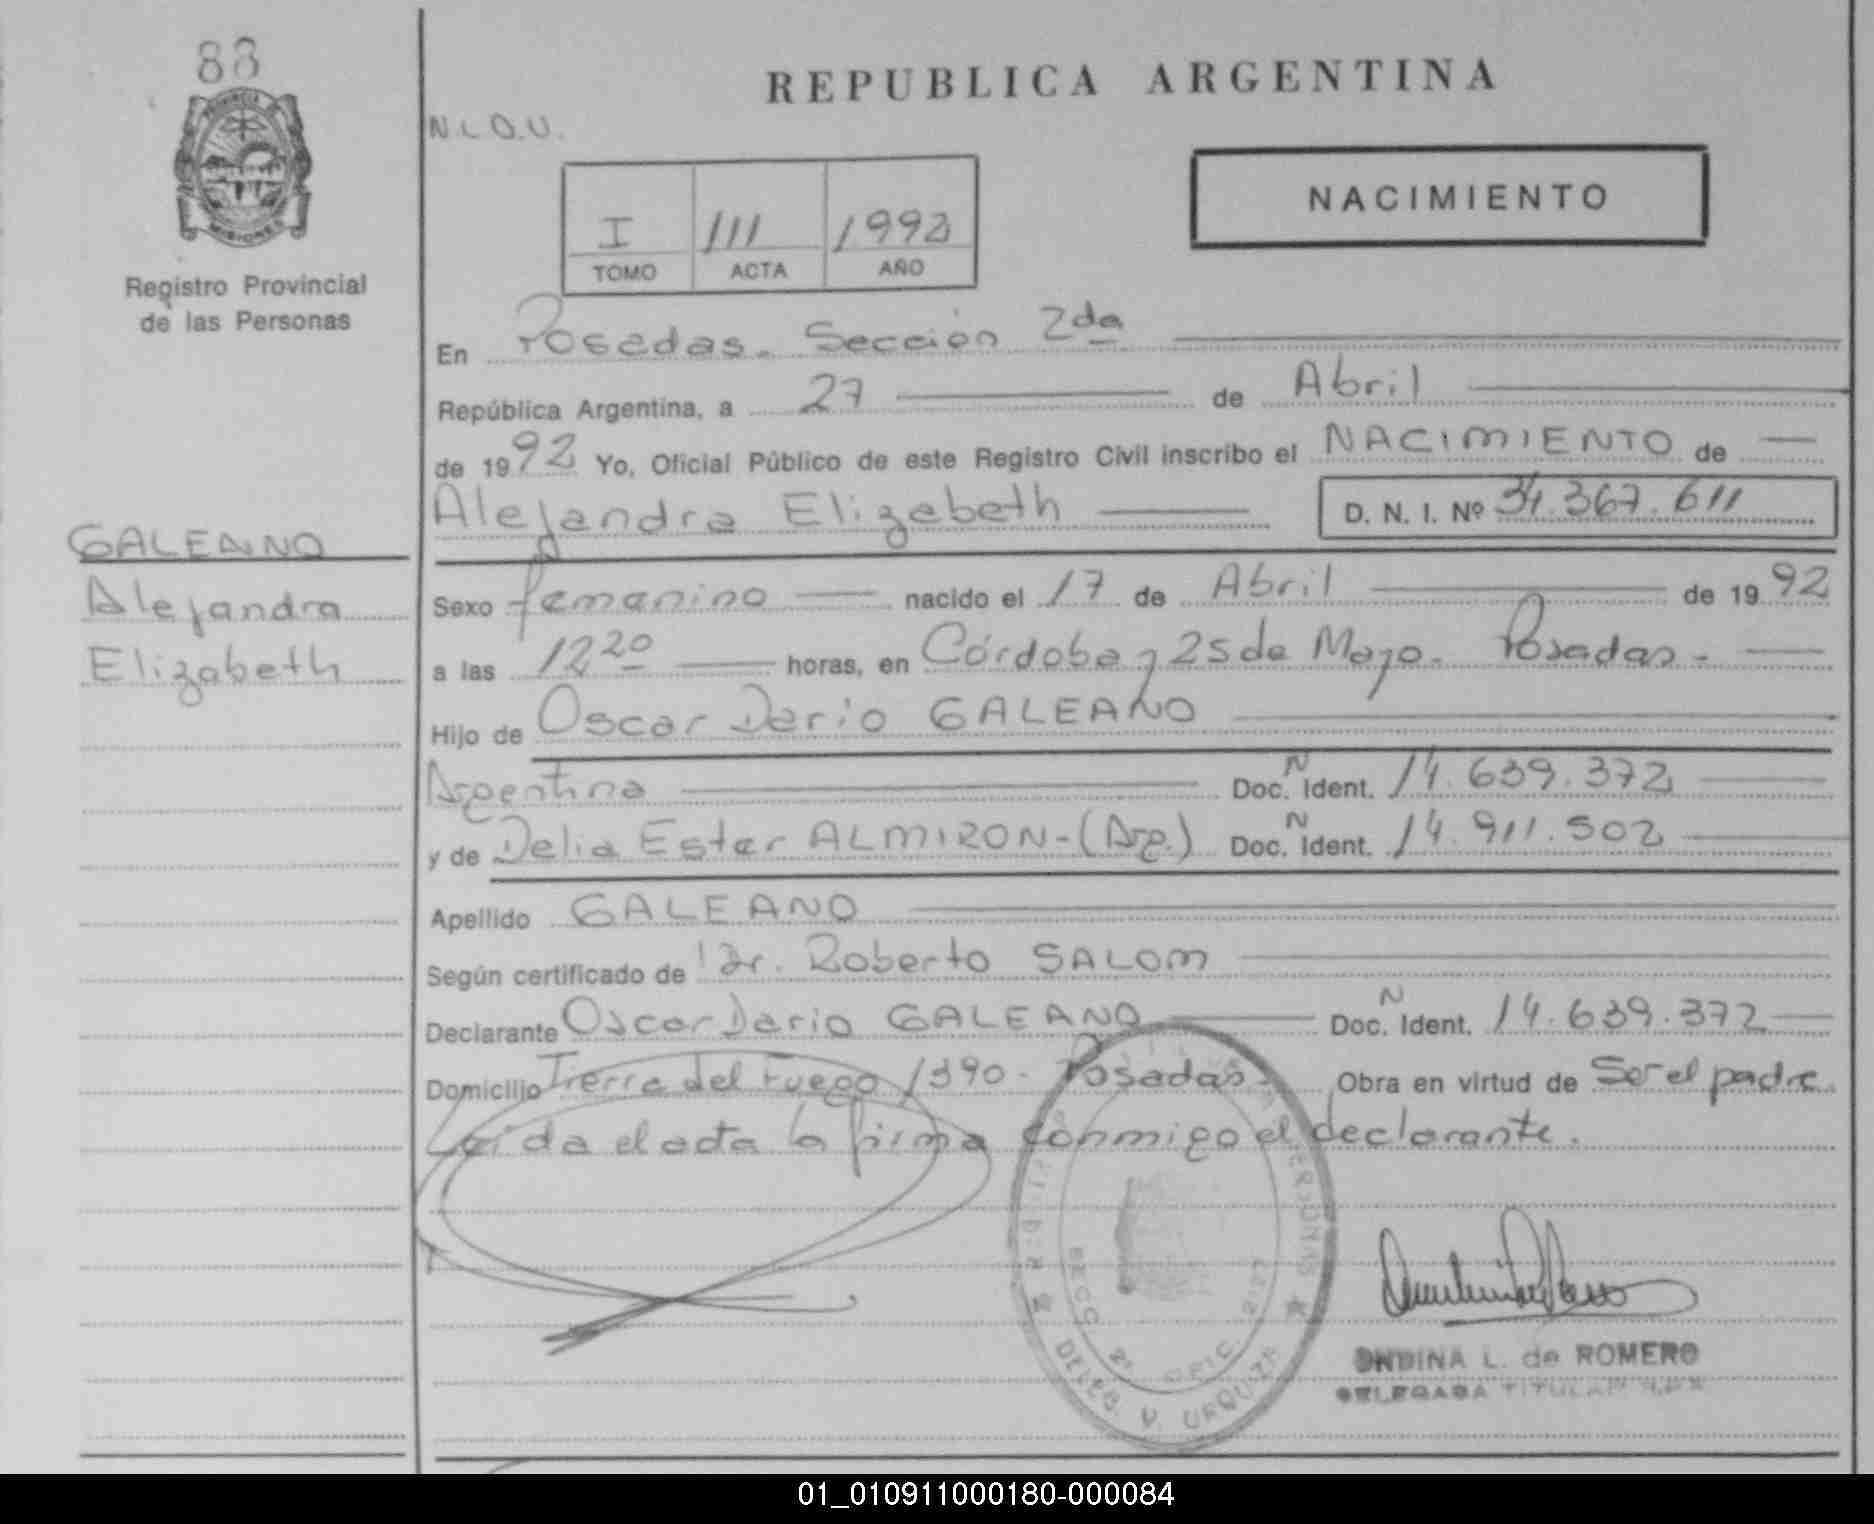 88
PROVINCIA DE
MISIONES
Registro Provincial
de las Personas
GALEANO
Alejandra
Elizabeth
REPUBLICA ARGENTINA
N.L.O.U.
I 111 1992
TOMO ACTA AÑO
NACIMIENTO
En Posadas. Sección 2da
República Argentina, a 27 de Abril
de 1992 Yo, Oficial Público de este Registro Civil inscribo el NACIMIENTO de
Alejandra Elizabeth D. N. I. Nº 34.367.611
Sexo femenino nacido el 17 de Abril de 1992
a las 12 20 horas, en Córdoba y 25 de Mayo. Posadas.
Hijo de Oscar Dario GALEANO
Argentina Doc. N Ident. 14.639.372
y de Delia Ester ALMIRON-(Arg.) Doc. N Ident. 14.911.502
Apellido GALEANO
Según certificado de Dr. Roberto SALOM
Declarante Oscar Dario GALEANO Doc. N Ident. 14.639.372
Domicilio Tierra del Fuego 1390. Posadas. Obra en virtud de Ser el padre
Leída el acta la firma conmigo el declarante.
SECC. 2ª OFIC.
DELEG. V. URQUIZA
ONDINA L. de ROMERO
DELEGADA TITULAR
01_010911000180-000084